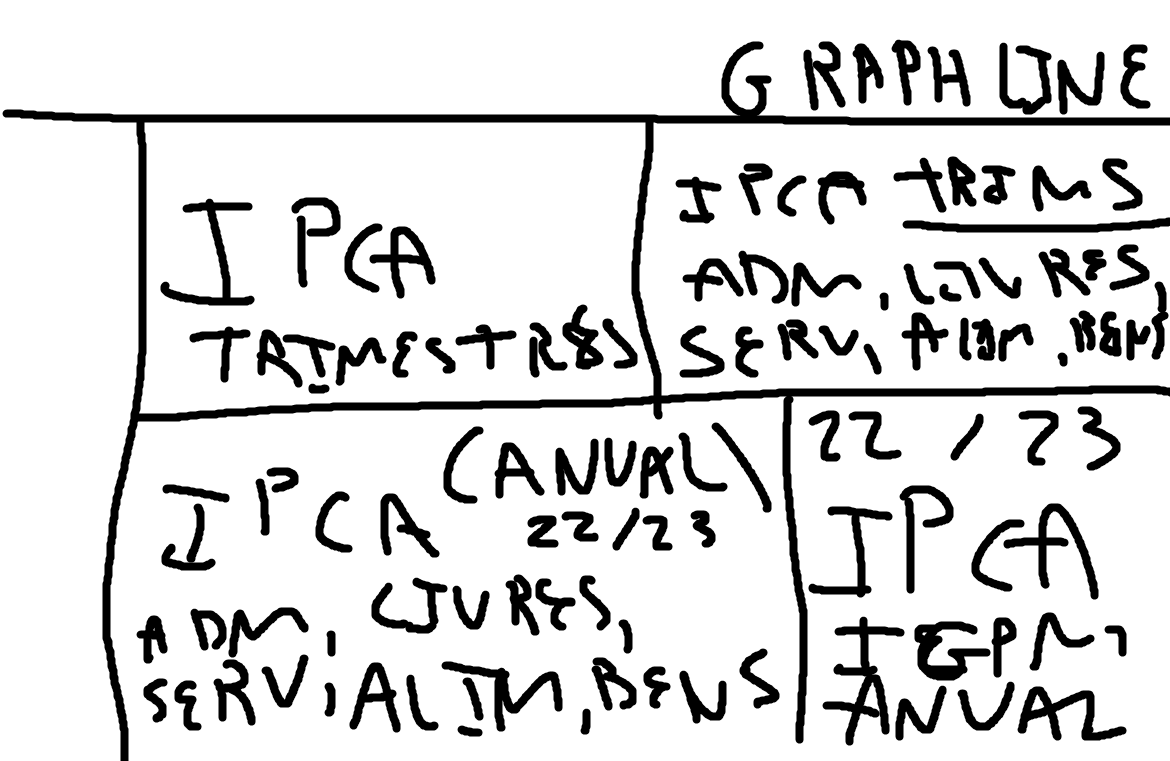 GRAPH LINE
IPCA
TRIMESTRES
IPCA TRIMS
ADM, LIVRES,
SERV, ALIM, BENS
IPCA (ANUAL)
22/23
ADM, LIVRES,
SERV, ALIM, BENS
22/23
IPCA
IGPM,
ANUAL